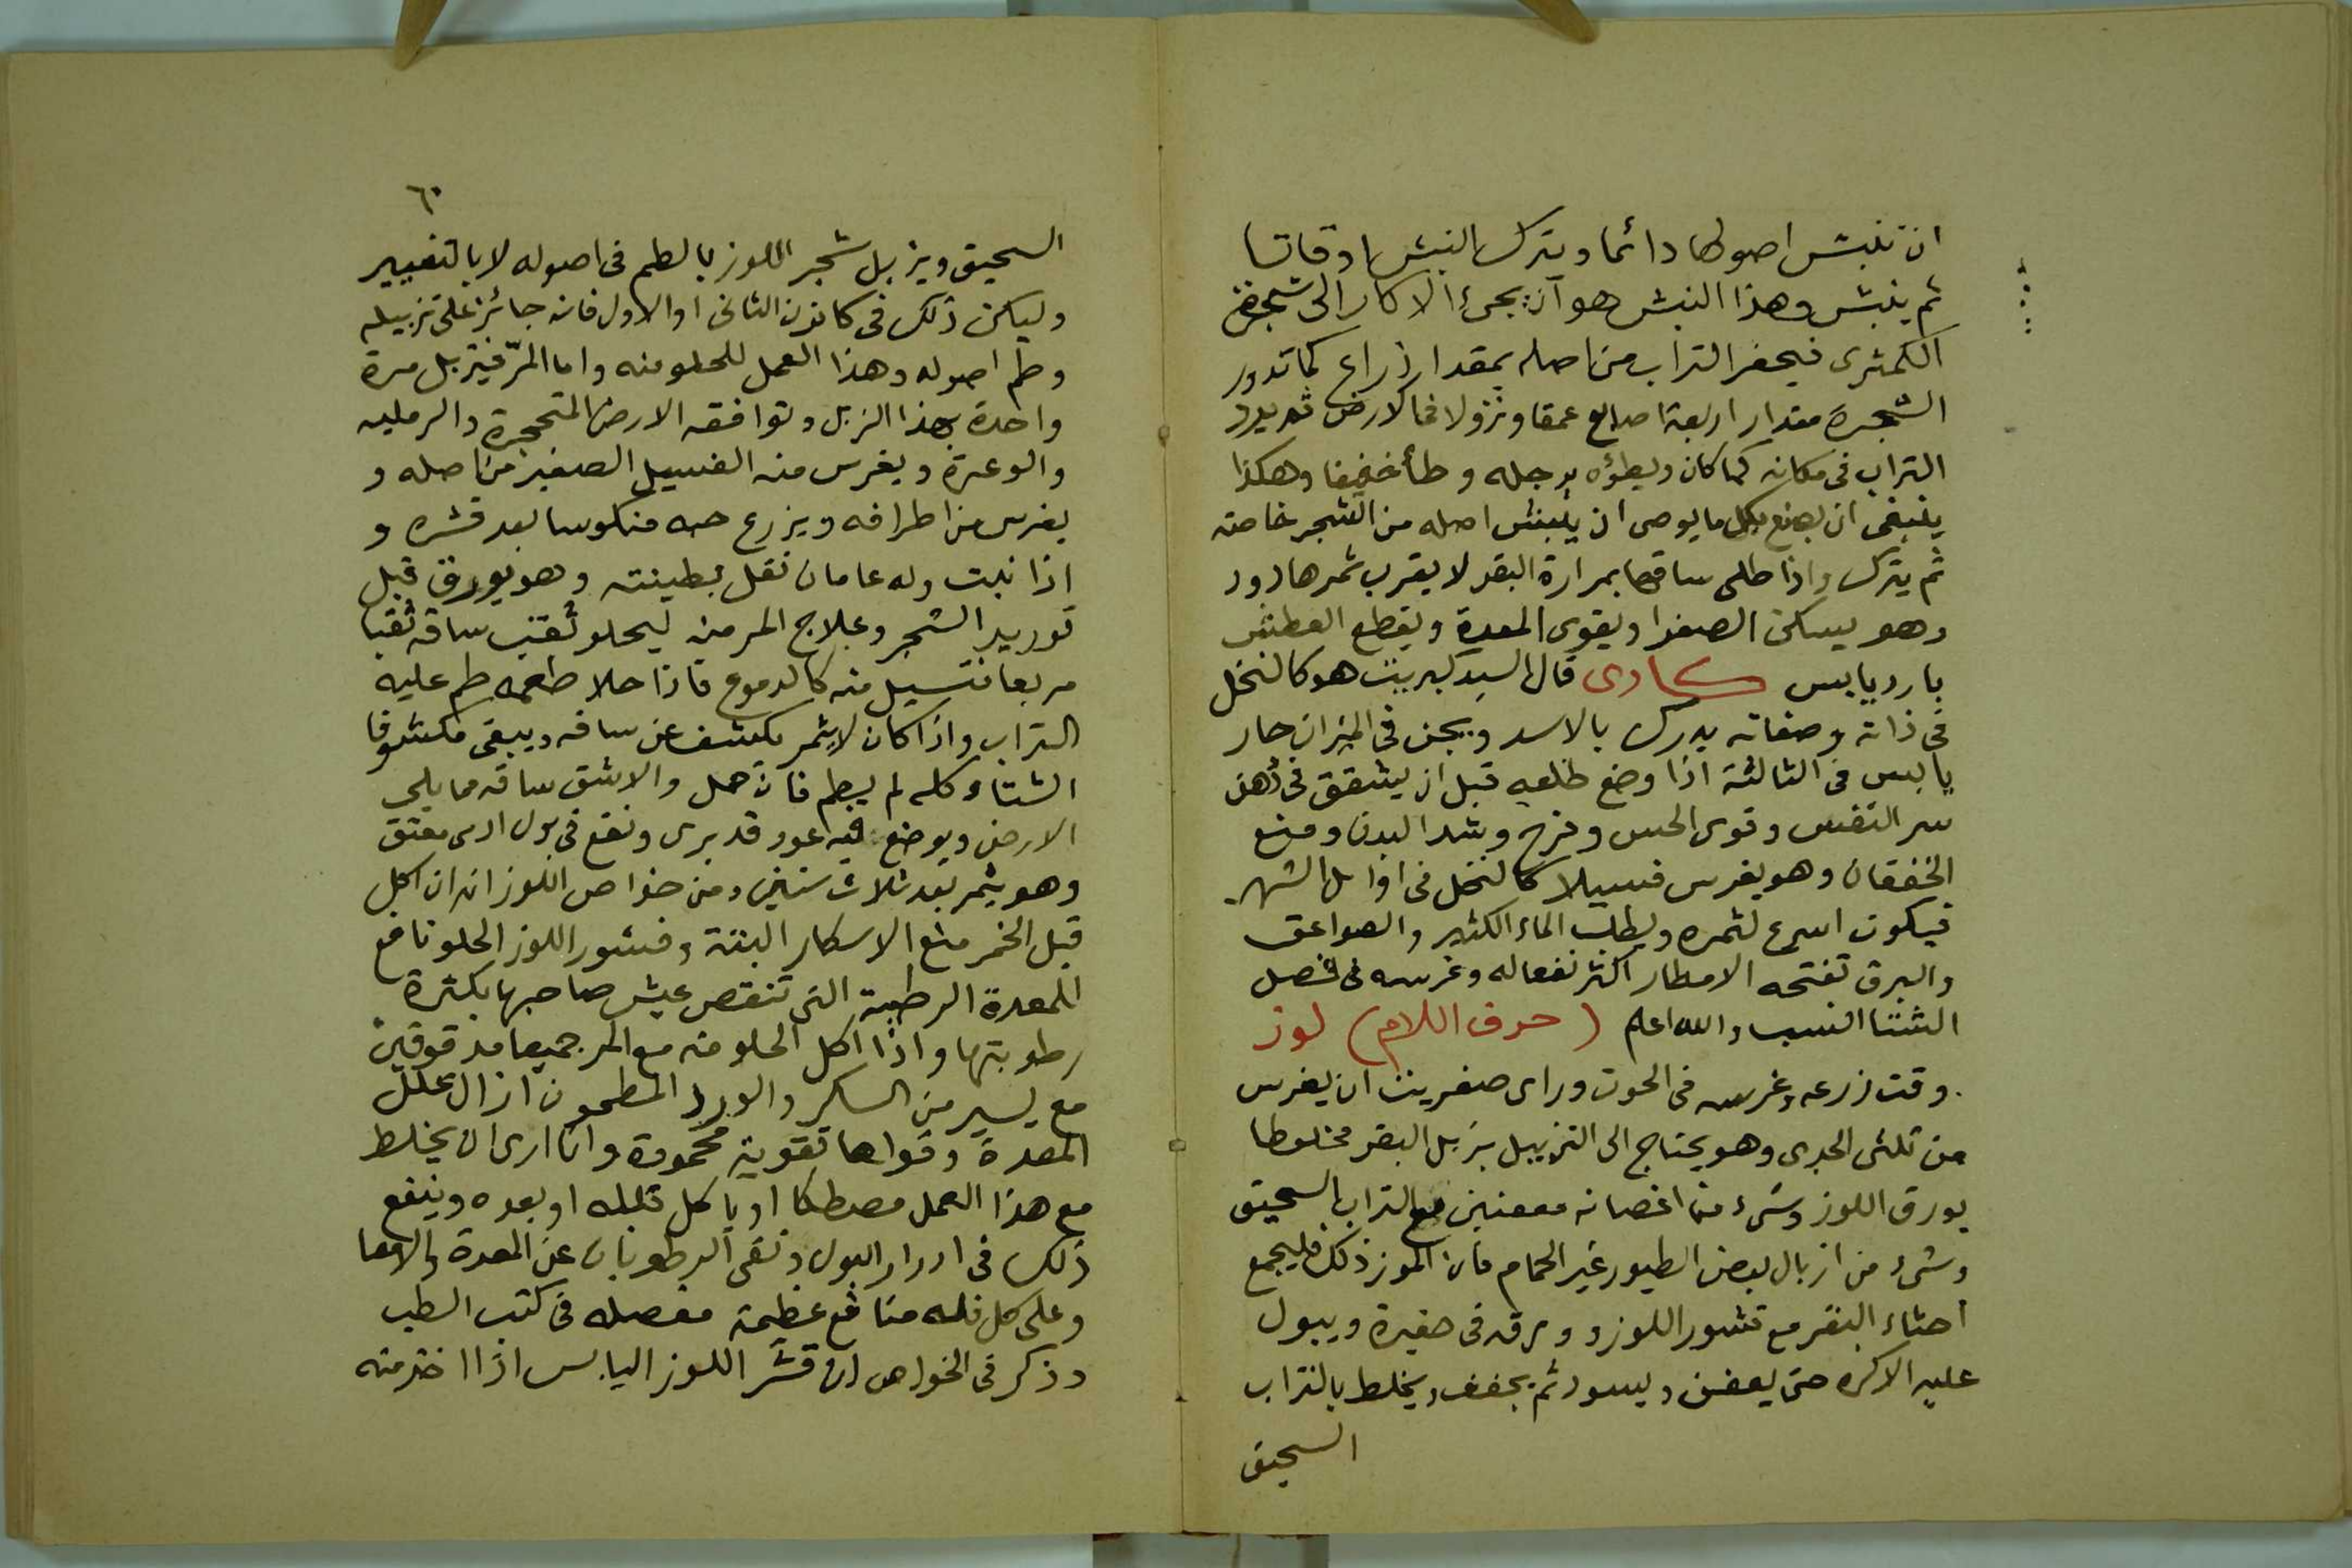 ان تنبش اصولها دائما ويترك النبش اوقاتا
ثم ينبش وهذا النبش هو أن يجىء الاكار الى شجرة
الكمثرى فيحفر التراب من اصله بمقدار ذراع كما تدور
الشجرة مقدار اربعة اصابع عمقا ونزولا فى الارض ثم يرد
التراب فى مكانه كما كان ويطؤه برجله وطأ خفيفا وهكذا
ينبغى ان يصنع بكل ما يوصى ان ينبش اصله من الشجر خاصة
ثم يترك واذا طلى ساقها بمرارة البقر لا يقرب ثمرها دود
وهو يسكن الصفرا ويقوى المعدة ويقطع العطش
بارد يابس كادى قال السيد كبريت هو كالنخل
فى ذاته وصفاته يدرك بالاسد ويجنى فى الميزان حار
يابس فى الثالثة اذا وضع طلعه قبل ان يشقق فى دهن
سر النفس وقوى الحس وفرح وشد البدن ومنع
الخفقان وهو يغرس فسيلا كالنخل فى اوائل الشهر
فيكون اسرع لثمره ويطلب الماء الكثير والصواعق
والبرق تفتحه الامطار اكثر نفعا له وغرسه فى فصل
الشتا انسب والله اعلم (حرف اللام) لوز
وقت زرعه وغرسه فى الحوت وراى صغريت ان يغرس
من ثلثى الجدى وهو يحتاج الى التزبيل بزبل البقر مخلوطا
بورق اللوز وشىء من اغصانه معفنين مع التراب السحيق
وشىء من ازبال بعض الطيور غير الحمام فان الموز ذلك فليجمع
احثاء البقر مع قشور اللوز وورقه فى حفيرة ويبول
عليه الاكره حتى يعفن ويسود ثم يجفف ويخلط بالتراب
السحيق
٦٠
السحيق ويزبل شجر اللوز بالطم فى اصوله لا بالتغبير
وليكن ذلك فى كانون الثانى او الاول فانه جائز على تزبيله
وطم اصوله وهذا العمل للحلو منه واما المرّ فيزبل مرة
واحدة بهذا الزبل وتوافقه الارض المتحجرة والرمليه
والوعرة ويغرس منه الفسيل الصغير من اصله و
يغرس من اطرافه ويزرع حبه منكوسا بعد قشره و
اذا نبت وله عامان نقل بطينته وهو يورق قبل
توريد الشجر وعلاج المر منه ليحلو ثقب ساقه ثقبا
مربعا فتسيل منه كالدموع فاذا حلا طعمه طم عليه
التراب واذا كان لا يثمر يكشف عن ساقه ويبقى مكشوفا
الشتاء كله لم يطم فان حمل والا شق ساقه مما يلى
الارض ويوضع فيه عود قد برى ونقع فى بول ادمى معتق
وهو يثمر بعد ثلاث سنين ومن خواص اللوز انه ان اكل
قبل الخمر منع الاسكار البتة وقشور اللوز الحلو نافع
للمعدة الرطبة التى تنقص عيش صاحبها بكثرة
رطوبتها واذا اكل الحلو منه مع المر جميعا مدقوقين
مع يسير من السكر والورد المطحون ازال علل
المعدة وقواها تقوية محمودة وانا ارى ان يخلط
مع هذا العمل مصطكا او ياكل قبله او بعده وينفع
ذلك فى ادرار البول ونقى الرطوبات عن المعدة والامعا
وعلى كل فله منافع عظيمة مفصله فى كتب الطب
وذكر فى الخواص ان قشر اللوز اليابس اذا اخذ منه